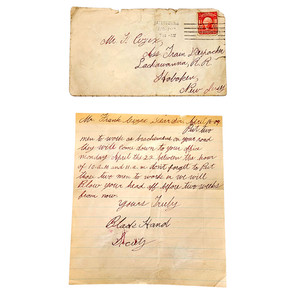 Mr. F. Cizek,
Ass Train
Lackawanna, R.R
Hoboken,
New Jersey
Mr. Frank Cizek
Put two
men to work as brakesmen on your road
they will come down to your office
monday April the 22 between the hour
of 10 A.M and A.M. dont forget to Put
those two men to work or we will
Blow your head off before two weeks
from now.
Yours Truly
Black Hand
Socity